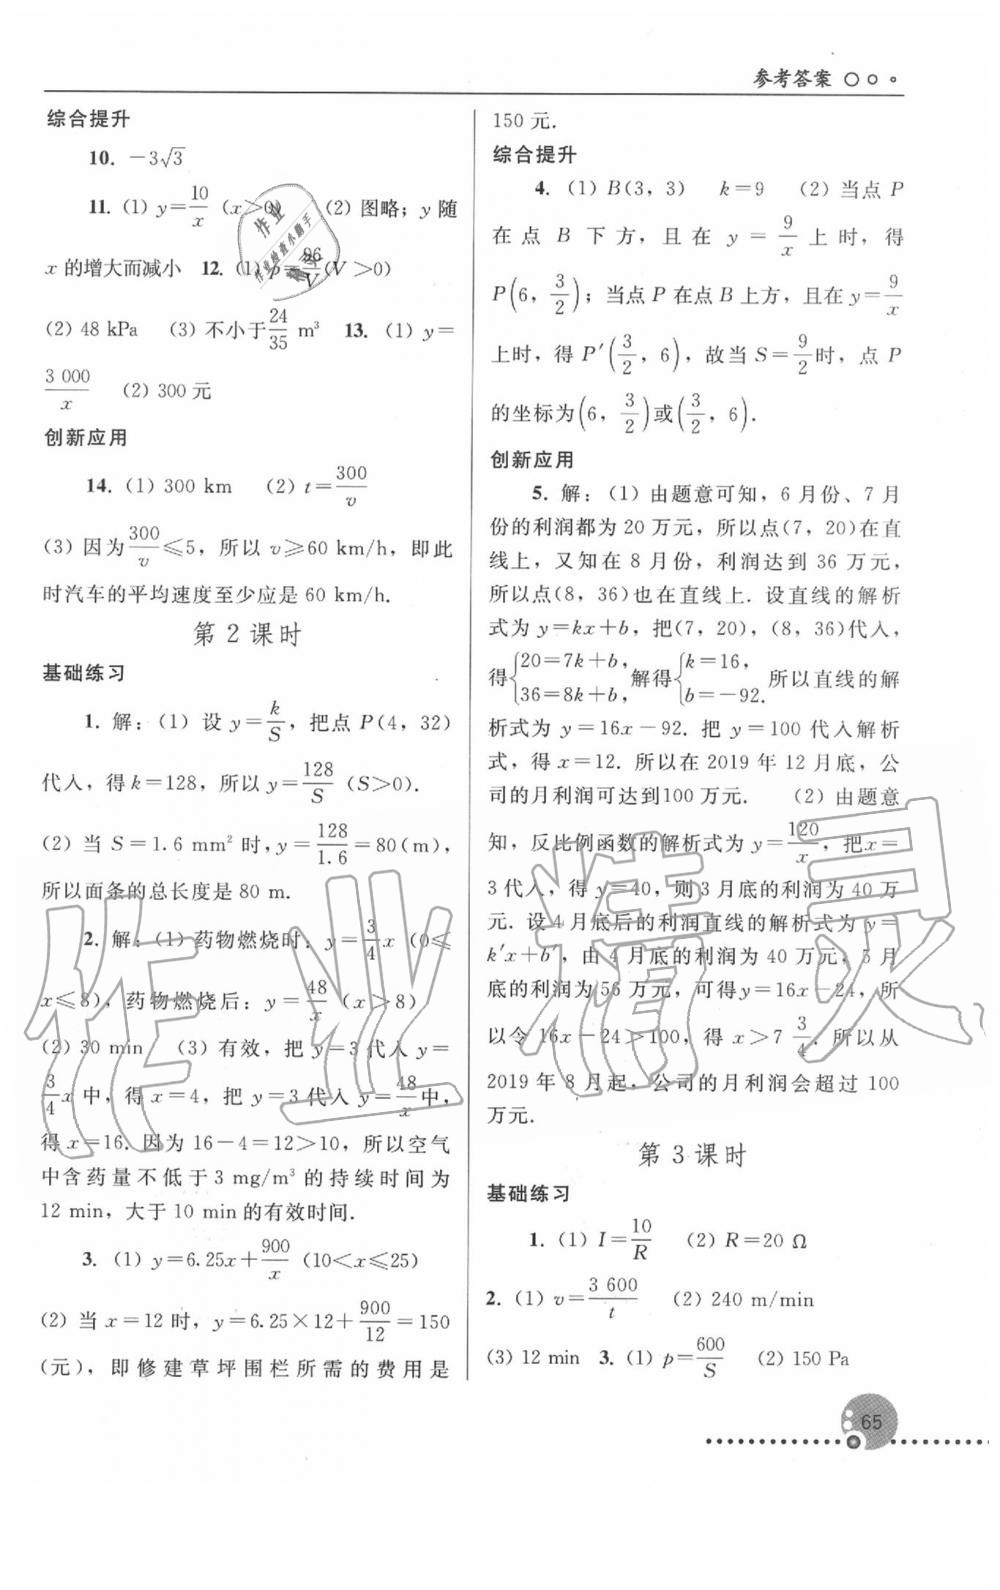 参考答案
综合提升
10. －3√3
11. (1) y＝10/x (x＞0) (2) 图略；y 随
x 的增大而减小 12. (1) p＝96/V(V＞0)
(2) 48 kPa (3) 不小于24/35 m³ 13. (1) y＝
3 000/x (2) 300 元
创新应用
14. (1) 300 km (2) t＝300/v
(3) 因为300/v≤5，所以 v≥60 km/h，即此
时汽车的平均速度至少应是 60 km/h.
第 2 课时
基础练习
1. 解：(1) 设 y＝k/S，把点 P(4，32)
代入，得 k＝128，所以 y＝128/S (S＞0).
(2) 当 S＝1.6 mm² 时，y＝128/1.6＝80(m)，
所以面条的总长度是 80 m.
2. 解：(1) 药物燃烧时：y＝3/4x (0≤
x≤8)，药物燃烧后：y＝48/x (x＞8)
(2) 30 min (3) 有效，把 y＝3 代入 y＝
3/4x 中，得 x＝4，把 y＝3 代入 y＝48/x中，
得 x＝16. 因为 16－4＝12＞10，所以空气
中含药量不低于 3 mg/m³ 的持续时间为
12 min，大于 10 min 的有效时间.
3. (1) y＝6.25x＋900/x (10＜x≤25)
(2) 当 x＝12 时，y＝6.25×12＋900/12＝150
(元)，即修建草坪围栏所需的费用是
150 元.
综合提升
4. (1) B(3，3) k＝9 (2) 当点 P
在点 B 下方，且在 y＝9/x 上时，得
P(6，3/2)；当点 P 在点 B 上方，且在 y＝9/x
上时，得 P′(3/2，6)，故当 S＝9/2时，点 P
的坐标为(6，3/2)或(3/2，6).
创新应用
5. 解：(1) 由题意可知，6 月份、7 月
份的利润都为 20 万元，所以点(7，20)在直
线上，又知在 8 月份，利润达到 36 万元，
所以点(8，36)也在直线上. 设直线的解析
式为 y＝kx＋b，把(7，20)，(8，36)代入，
得{20＝7k＋b，36＝8k＋b，解得{k＝16，b＝－92. 所以直线的解
析式为 y＝16x－92. 把 y＝100 代入解析
式，得 x＝12. 所以在 2019 年 12 月底，公
司的月利润可达到100 万元. (2) 由题意
知，反比例函数的解析式为 y＝120/x，把 x＝
3 代入，得 y＝40，则 3 月底的利润为 40 万
元. 设 4 月底后的利润直线的解析式为 y＝
k′x＋b′，由 4 月底的利润为 40 万元，5 月
底的利润为 56 万元，可得y＝16x－24，所
以令 16x－24＞100，得 x＞7 3/4. 所以从
2019 年 8 月起，公司的月利润会超过 100
万元.
第 3 课时
基础练习
1. (1) I＝10/R (2) R＝20 Ω
2. (1) v＝3 600/t (2) 240 m/min
(3) 12 min 3. (1) p＝600/S (2) 150 Pa
65
作业精灵